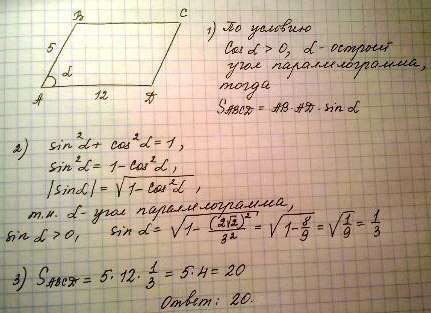 B C
5
α
A 12 D
1) По условию
Cos α > 0, α - острый
угол параллелограмма,
тогда
S ABCD = AB · AD · sin α
2) sin²α + cos²α = 1,
sin²α = 1 - cos²α,
|sin α| = √(1 - cos²α),
т.к. α - угол параллелограмма,
sin α > 0, sin α = √(1 - (2√2)²/3²) = √(1 - 8/9) = √(1/9) = 1/3
3) S ABCD = 5 · 12 · 1/3 = 5 · 4 = 20
Ответ: 20.